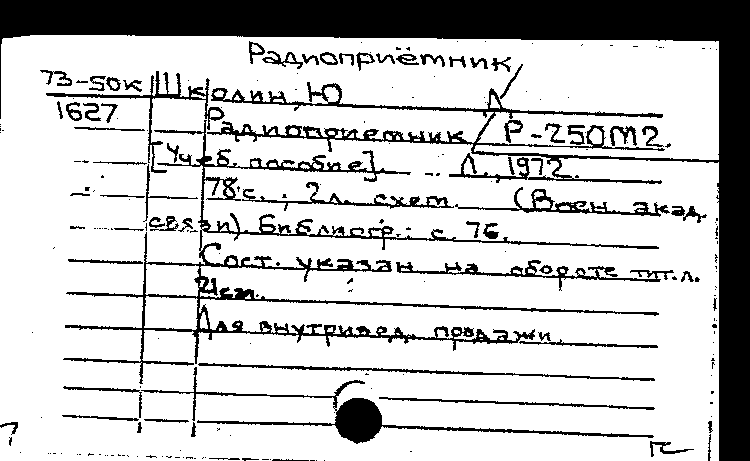 Радиоприёмник
73-50к Школин, Ю
1627 Радиоприемник Р-250М2.
[Учеб. пособие]. Л., 1972.
78 с.; 2 л. схем. (Воен. акад.
связи). Библиогр.: с. 76.
Сост. указан на обороте тит. л.
21 см.
Для внутривед. продажи.